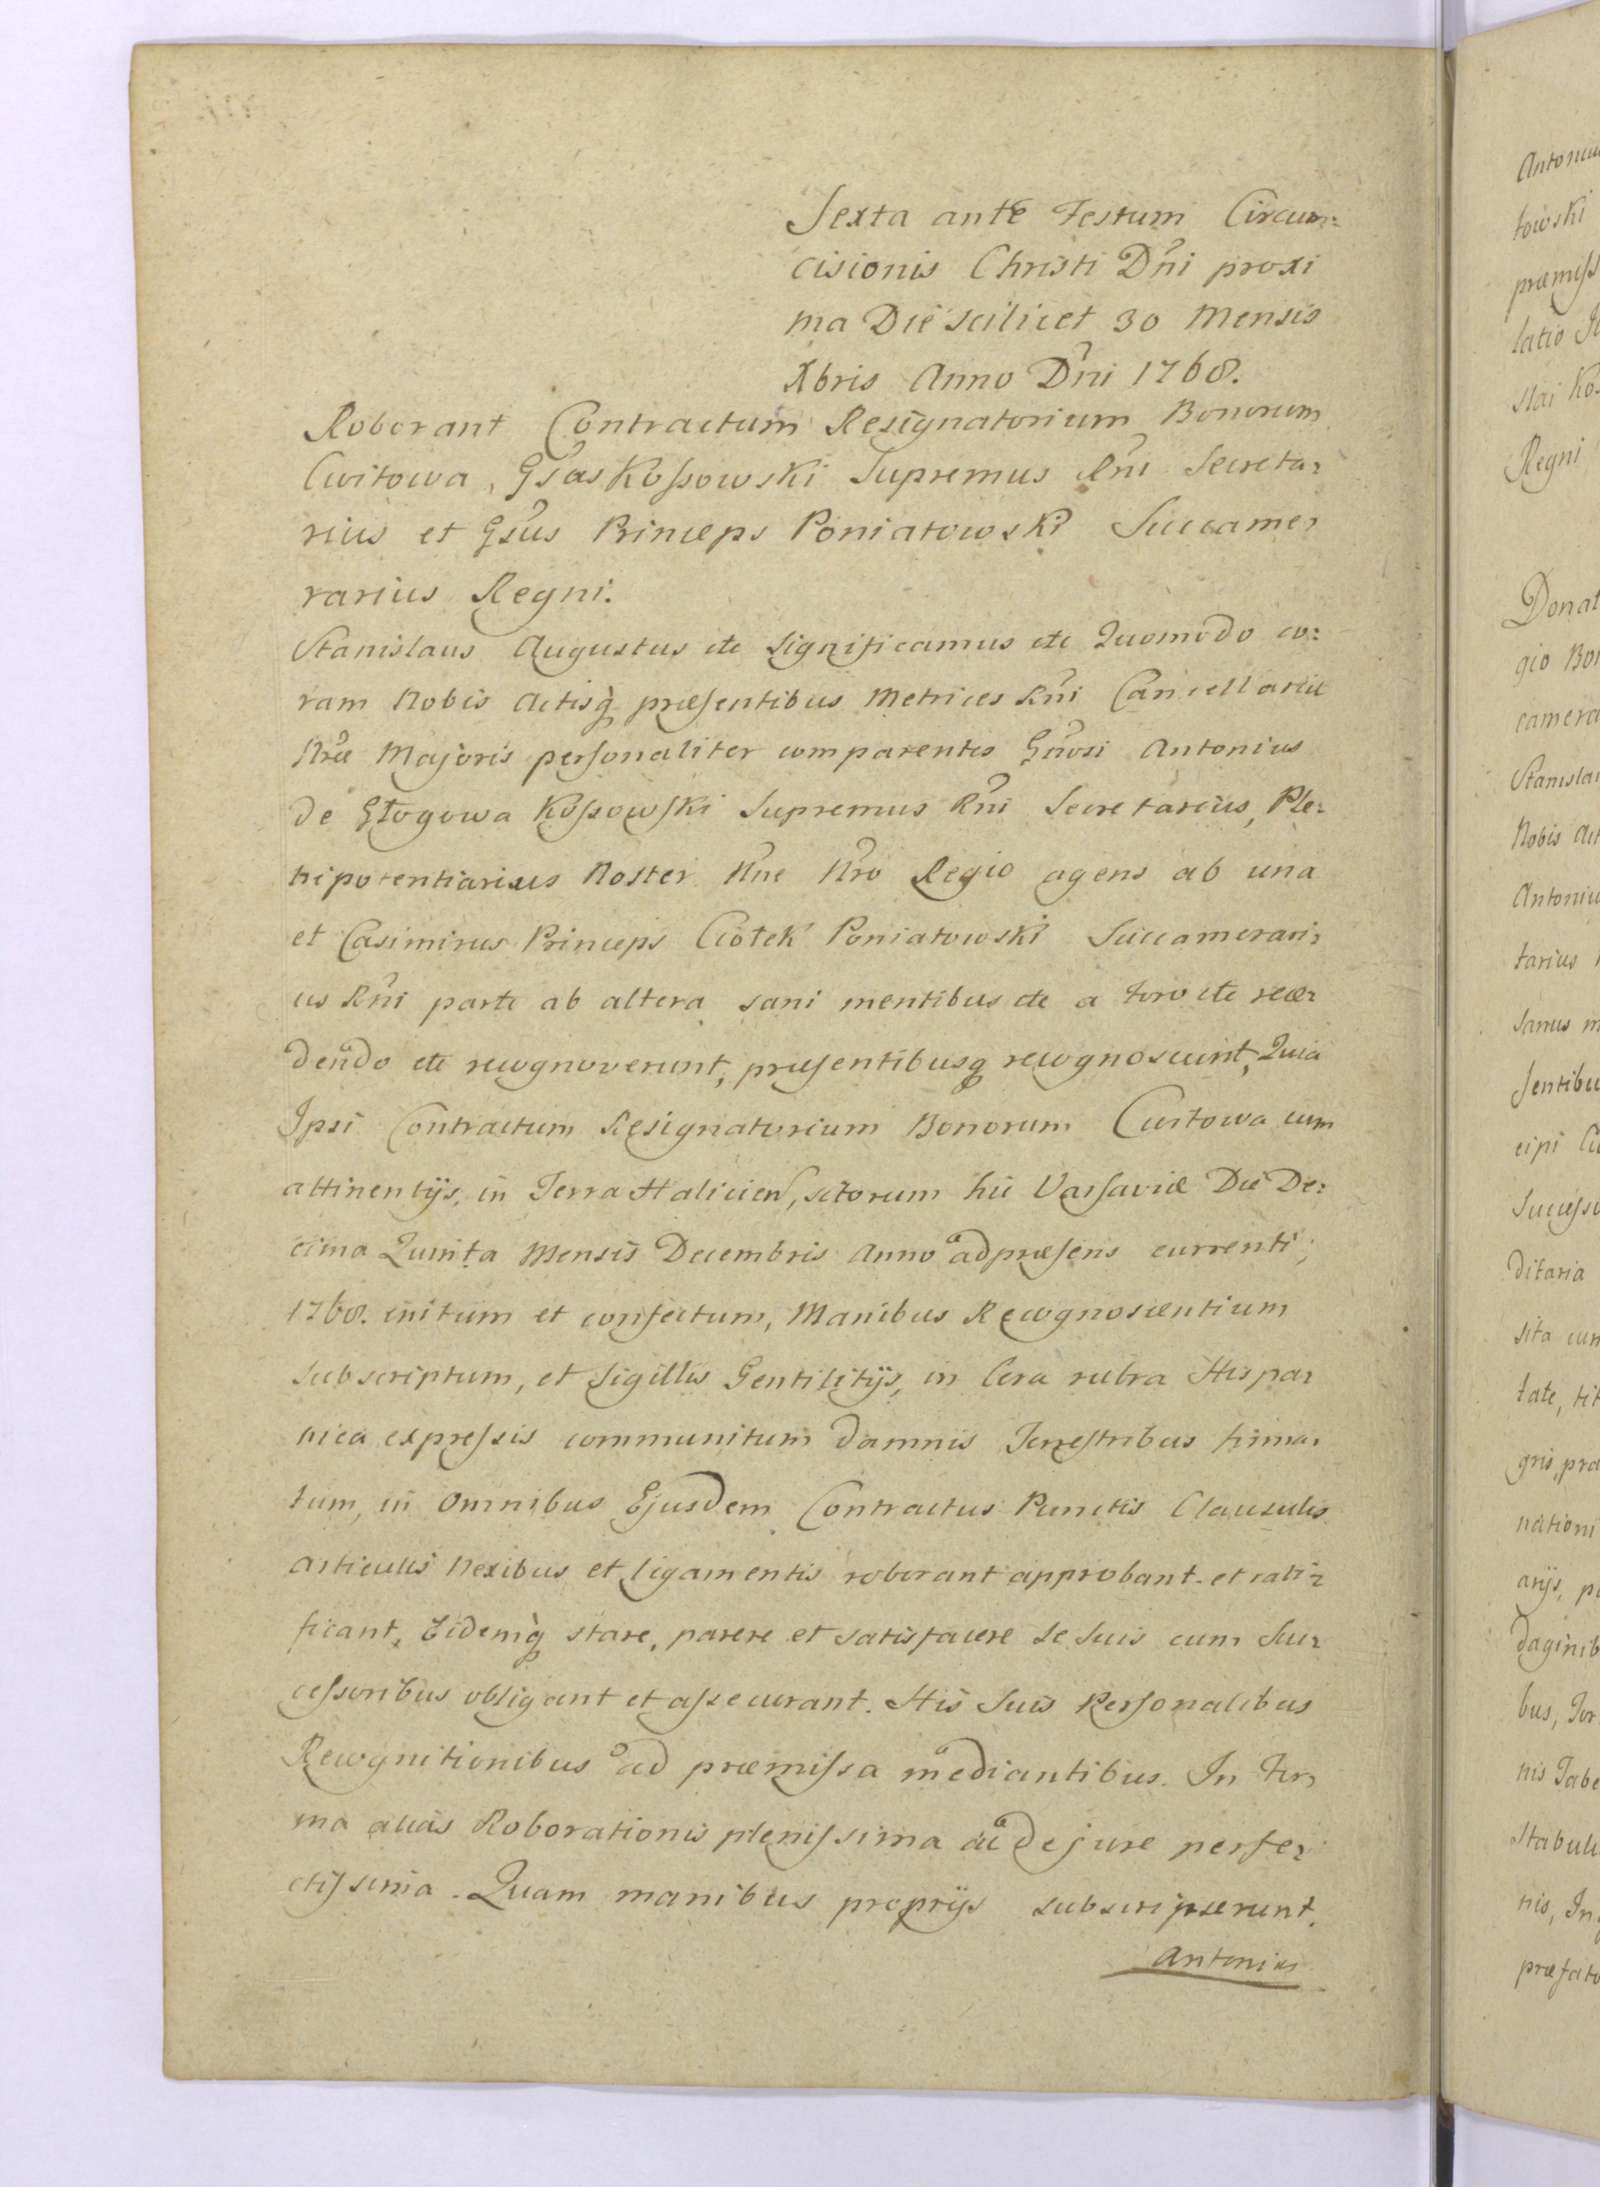 Sexta ante Festum Circum=
cisionis Christi Dni proxi
ma Die scilicet 30 Mensis
Xbris Anno Dni 1768.
Roborant Contractum Resignatorium Bonorum
Cwitowa, Gsus Kossowski Supremus Rni Secreta=
rius et Gsus Princeps Poniatowski Succame=
rarius Regni.
Stanislaus Augustus etc Significamus etc Quomodo co=
ram Nobis Actisq præsentibus Metrices Rni Cancellariæ
Nræ Majoris personaliter comparentes Gnosi Antonius
de Głogowa Kossowski Supremus Rni Secretarius, Ple=
nipotentiarius Noster Nne Nro Regio agens ab una
et Casimirus Princeps Ciołek Poniatowski Succamerari=
us Rni parte ab altera sani mentibus etc a foro etc rece=
dendo etc recognoverunt, præsentibusq recognoscunt, Quia
Ipsi Contractum Resignatorium Bonorum Cwitowa cum
attinentijs, in Terra Halicien, sitorum hic Varsaviæ Die De=
cima Quinta Mensis Decembris Anno ad præsens currenti,
1768. initum et confectum, Manibus Recognoscentium
subscriptum, et Sigillis Gentilitijs, in Cera rubra Hispa=
nica expressis communitum damnis Terrestribus firma=
tum, in Omnibus Ejusdem Contractus Punctis Clausulis
Articulis Nexibus et ligamentis roborant approbant et rati=
ficant, Eidemq stare, parere et satisfacere se suis cum Suc=
cessoribus obligant et assecurant. His Suis Personalibus
Recognitionibus ad præmissa mediantibus. In For=
ma alias Roborationis plenissima ac de jure perfe=
ctissima. Quam manibus proprijs subscripserunt.
Antonius
Antoniu
towski
præmiss
latio
slai Kos
Regni
Donat
gio Bon
camera
Stanislau
Nobis Act
Antoniu
tarius
Sanus m
sentibu
cipi
Successo
ditaria
sita cum
tate, tit
gris, pra
nationi
arijs, p
daginib
bus,
nis Tabe
Stabuli
nis, In
præfato